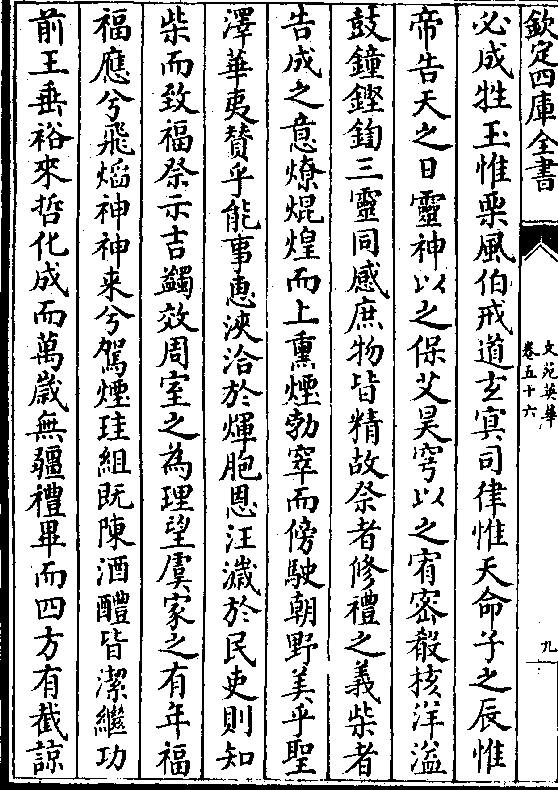 欽定四庫全書
文苑英華
卷五十六
九
必成牲玉惟栗風伯戒道玄冥司律惟天命子之辰惟
帝告天之日靈神以之保艾昊穹以之宥密殽核洋溢
鼓鐘鏗鍧三靈同感庶物皆精故祭者修禮之義柴者
告成之意燎焜煌而上熏煙勃窣而傍駛朝野美乎聖
澤華夷贊乎能事惠浹洽於煇胞恩汪濊於民吏則知
柴而致福祭示吉蠲效周室之為理望虞家之有年福
福應兮飛焰神神來兮駕煙珪組既陳酒醴皆潔繼功
前王垂裕來哲化成而萬歲無疆禮畢而四方有截諒